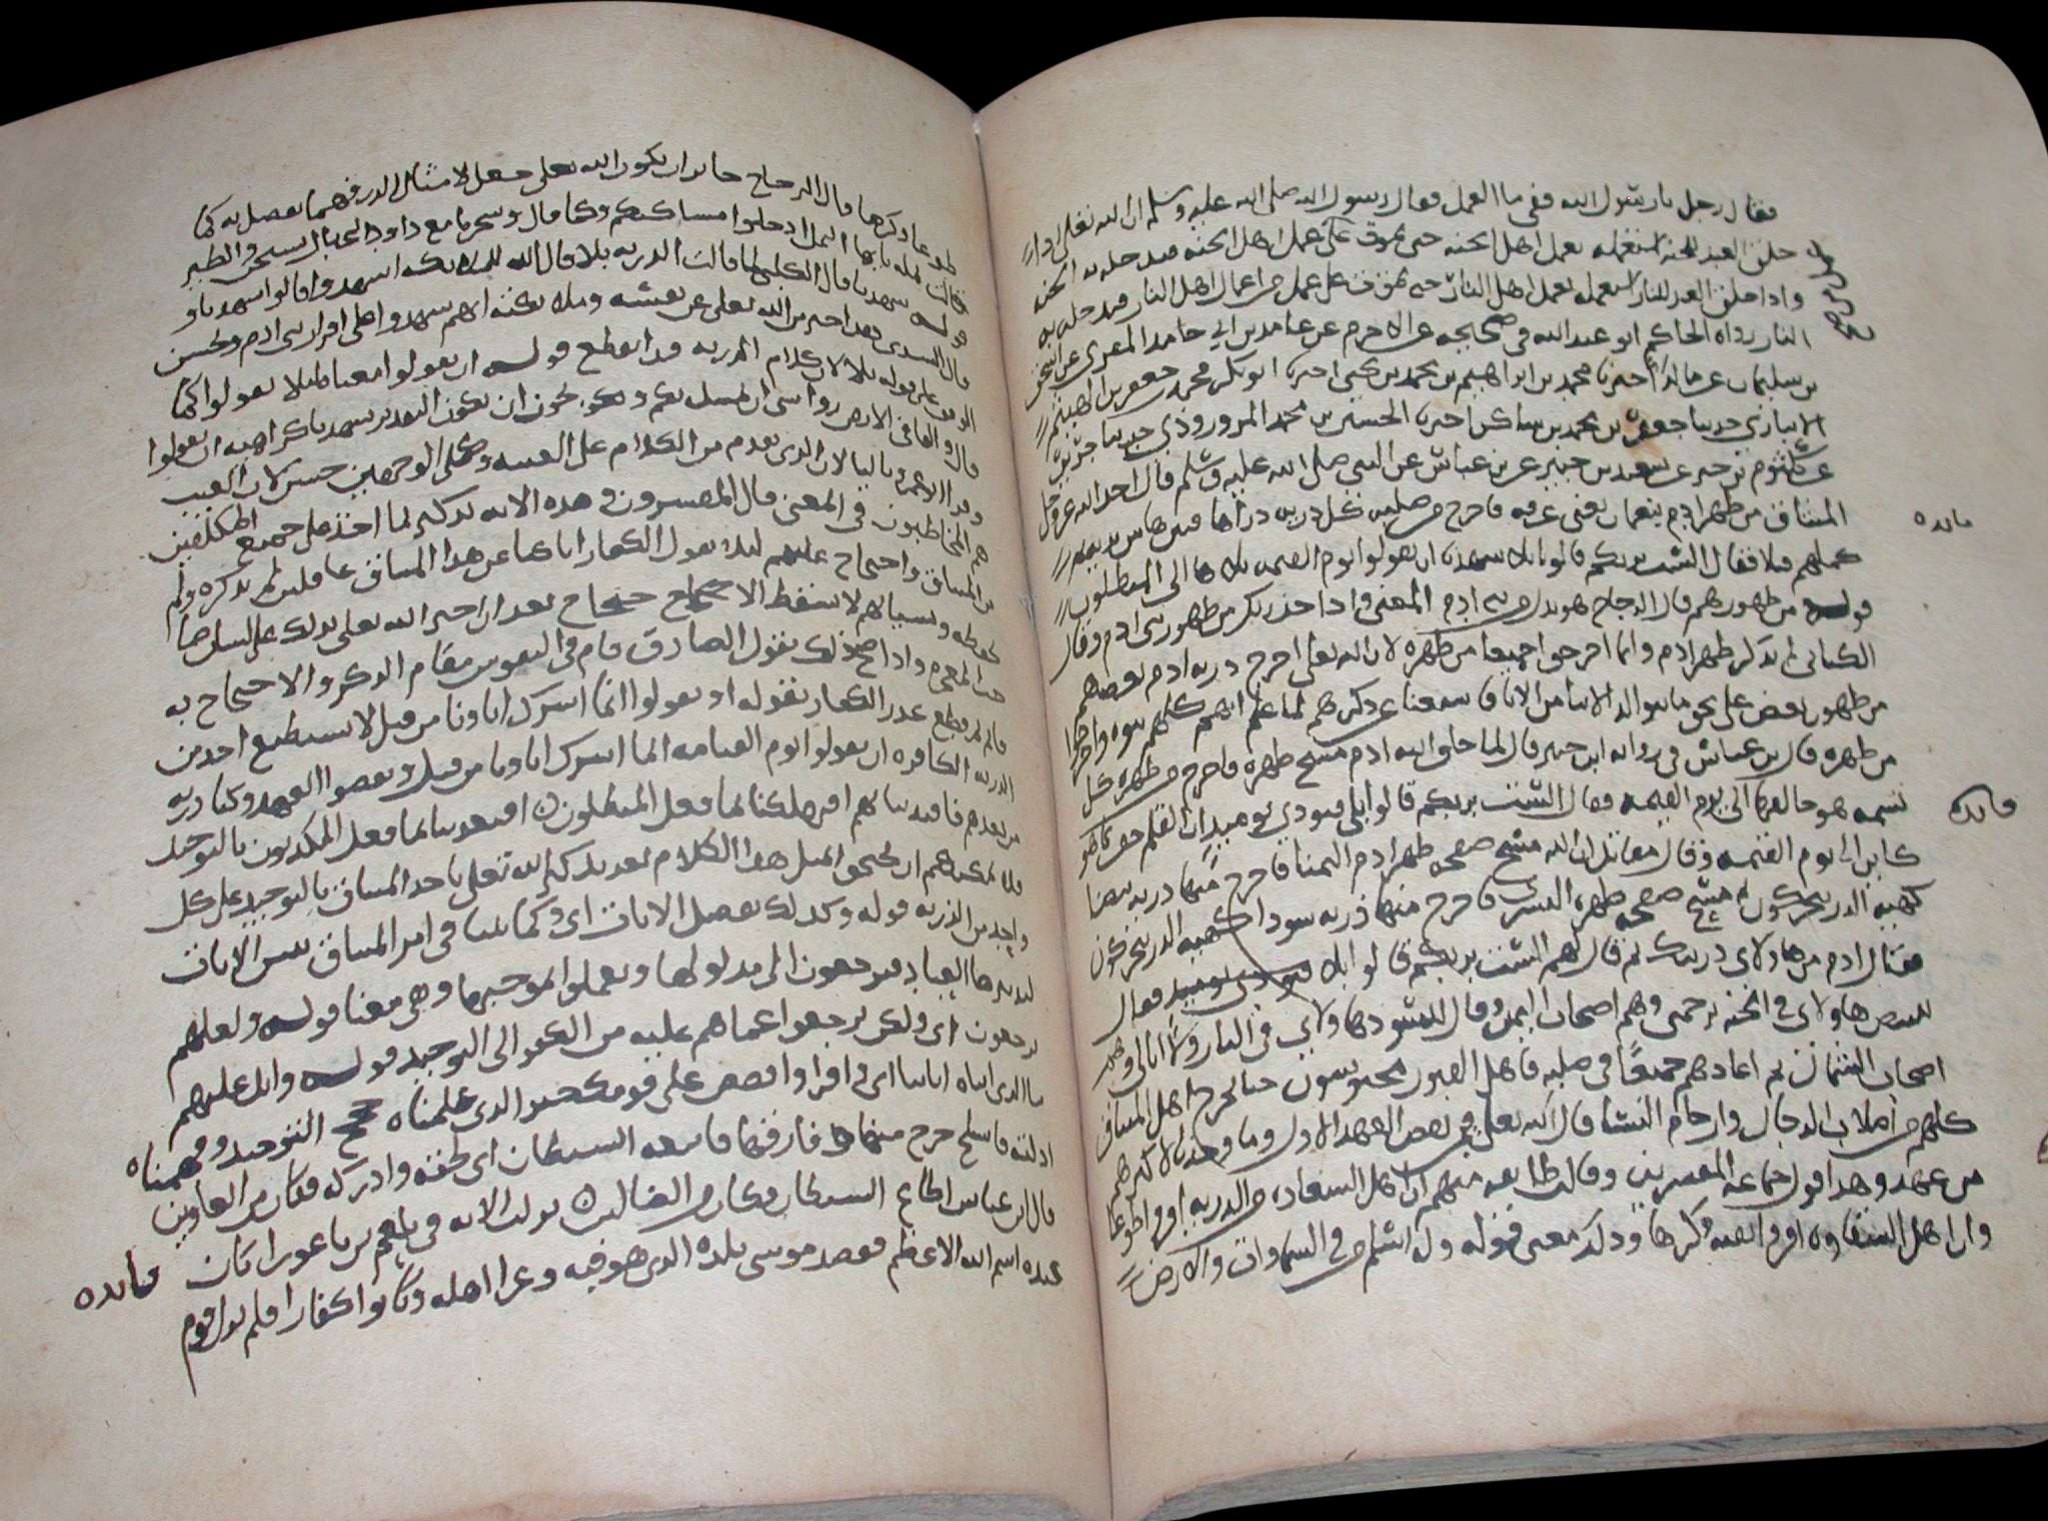 فقال رجل يا رسول الله ففيما العمل فقال رسول الله صلى الله عليه وسلم ان الله تعلى اذا
خلق العبد للجنه استعمله بعمل اهل الجنه حتى يموت على عمل اهل الجنه فيدخله به الجنه
واذا خلق العبد للنار استعمله بعمل اهل النار حتى يموت على عمل من اعمال اهل النار فيدخله به
النار رواه الحاكم ابو عبد الله في صحيحه عن الاخرم عن حامد بن ابي حامد المقري عن اسحق
بن سليمان عن مالك اخبرنا محمد بن ابراهيم بن محمد بن يحيى اخبرنا ابو بكر محمد بن جعفر بن الهيثم
الانباري حدثنا جعفر بن محمد بن شاكر اخبرنا الحسين بن محمد المروروذي حدثنا جرير
عن كلثوم بن جبر عن سعيد بن جبير عن بن عباس عن النبي صلى الله عليه وسلم قال اخذ الله عز وجل
الميثاق من ظهر ادم بنعمان يعني عرفه فاخرج من صلبه كل ذريه ذراها فنثرها بين يديه
كلمهم قبلا فقال الست بربكم قالوا بلا شهدنا ان يقولوا يوم القيمه تلاها الى المبطلون
قوله من ظهورهم قال الزجاج هو بدل من بني ادم المعنى واذا خذ ربك من ظهور بني ادم وقال
الكناني لم يذكر ظهر ادم وانما اخرجوا جميعا من ظهره لان الله تعلى اخرج ذريه ادم بعضهم
من ظهور بعض على نحو ما يتوالد الابنا من الابا فاستغنا عن ذكرهم لما علم انهم كلهم بنوه واخرجوا
من ظهره قال بن عباس في روايه ابن جبير قال لما خلق الله ادم مسح ظهره فاخرج من ظهره كل
نسمه هو خالقها الى يوم القيمه فقال الست بربكم قالوا بلى فنودي يوميذ ان القلم جف بما هو
كاين الى يوم القيمه وقال مقاتل ان الله مسح صفحه ظهر ادم اليمنا فاخرج منها ذريه بيضا
كهيه الذر يتحركون ثم مسح صفحه ظهره اليسرى فاخرج منها ذريه سودا كهيه الذر يتحركون
فقال ادم من هاولاي ذريتك ثم قال لهم الست بربكم قالوا بلا فنودي يوميذ فقال
للبيض هاولاي في الجنه برحمتي وهم اصحاب اليمين وقال للسود هاولاي في النار ولا ابالي وهم
اصحاب الشمال ثم اعادهم جميعا في صلبه فاهل القبور محبوسون حتا يخرج اهل الميثاق
كلهم من اصلاب الرجال وارحام النسا قال الله تعلى في من نقض العهد الاول وما وجدنا لاكثرهم
من عهد وهذا قول جماعه المفسرين وقالت طايفه منهم ان اهل السعاده من الذريه اقروا طوعا
وان اهل الشقاوه اقروا تقيه وكرها وذلك معنى قوله وله اسلم من في السماوات والارض
فايده
فايده
طوعا وكرها قال الزجاج جايز ان يكون الله تعلى جعل لامثال الذر فهما تعقل به كما
قالت نمله يا ايها النمل ادخلوا مساكنكم وكما قال وسخرنا مع داود الجبال يسبحن والطير
قوله شهدنا قال الكلبي لما قالت الذريه بلا قال الله للملايكه اشهدوا قالوا شهدنا و
قال السدي هذا خبر من الله تعلى عن نفسه وملايكته انهم شهدوا على اقرار بني ادم ويحسن
الوقف على قوله بلا لان كلام الذريه قد انقطع قوله ان يقولوا معناه ليلا يقولوا كما
قال والقا في الارض رواسي ان تميد بكم ويكون ان يكون التقدير شهدنا كراهيه ان يقولوا
وقرا ابو عمرو باليا لان الذي تقدم من الكلام على الغيبه وكلى الوجهين حسن لان الغيب
هم المخاطبون في المعنى قال المفسرون وهذه الايه تذكير لما اخذ على جميع المكلفين
من الميثاق واحتجاج عليهم ليلا يقول الكفار انا كنا عن هذا الميثاق غافلين لم نذكره ولم
نحفظه ونسيانهم لا يسقط الاحتجاج بعد ان اخبر الله تعلى بذلك على لسان صا
حب المعجزه واذا صح ذلك بقول الصادق قام في النفوس مقام الذكر والاحتجاج به
قايم ثم قطع عذر الكفار بقوله او يقولوا انما اشرك اباونا من قبل لا يستطيع احد من
الذريه الكافره ان يقولوا يوم القيامه انما اشرك اباونا من قبل ونقضوا العهد وكنا ذريه
من بعدهم فاقتدينا بهم افتهلكنا بما فعل المبطلون افتعذبنا بما فعل المكذبون بالتوحيد
فلا يمكنهم ان يحتجوا بمثل هذا الكلام بعد تذكير الله تعلى باخذ الميثاق بالتوحيد على كل
واحد من الذريه قوله وكذلك نفصل الايات اي وكما بينا في امر الميثاق نبين الايات
ليتدبرها العباد فيرجعون الى مدلولها ويعملوا بموجبها وهي معنا قوله ولعلهم
يرجعون اي ولكي يرجعوا عما هم عليه من الكفر الى التوحيد قوله واتل عليهم
نبا الذي اتيناه اياتنا اي واقرا واقصص على قومك خبر الذي علمناه حجج التوحيد وفهمناه
ادلته فانسلخ خرج منها وفارقها فاتبعه الشيطان اي لحقه وادركه فكان من الغاوين
قال ابن عباس اطاع الشيطان فكان من الضالين نزلت الايه في بلعم بن باعورا كان
عنده اسم الله الاعظم فقصد موسى بلده الذي هو فيه وغزا اهله وكانوا كفارا فلم يزل قوم
فايده